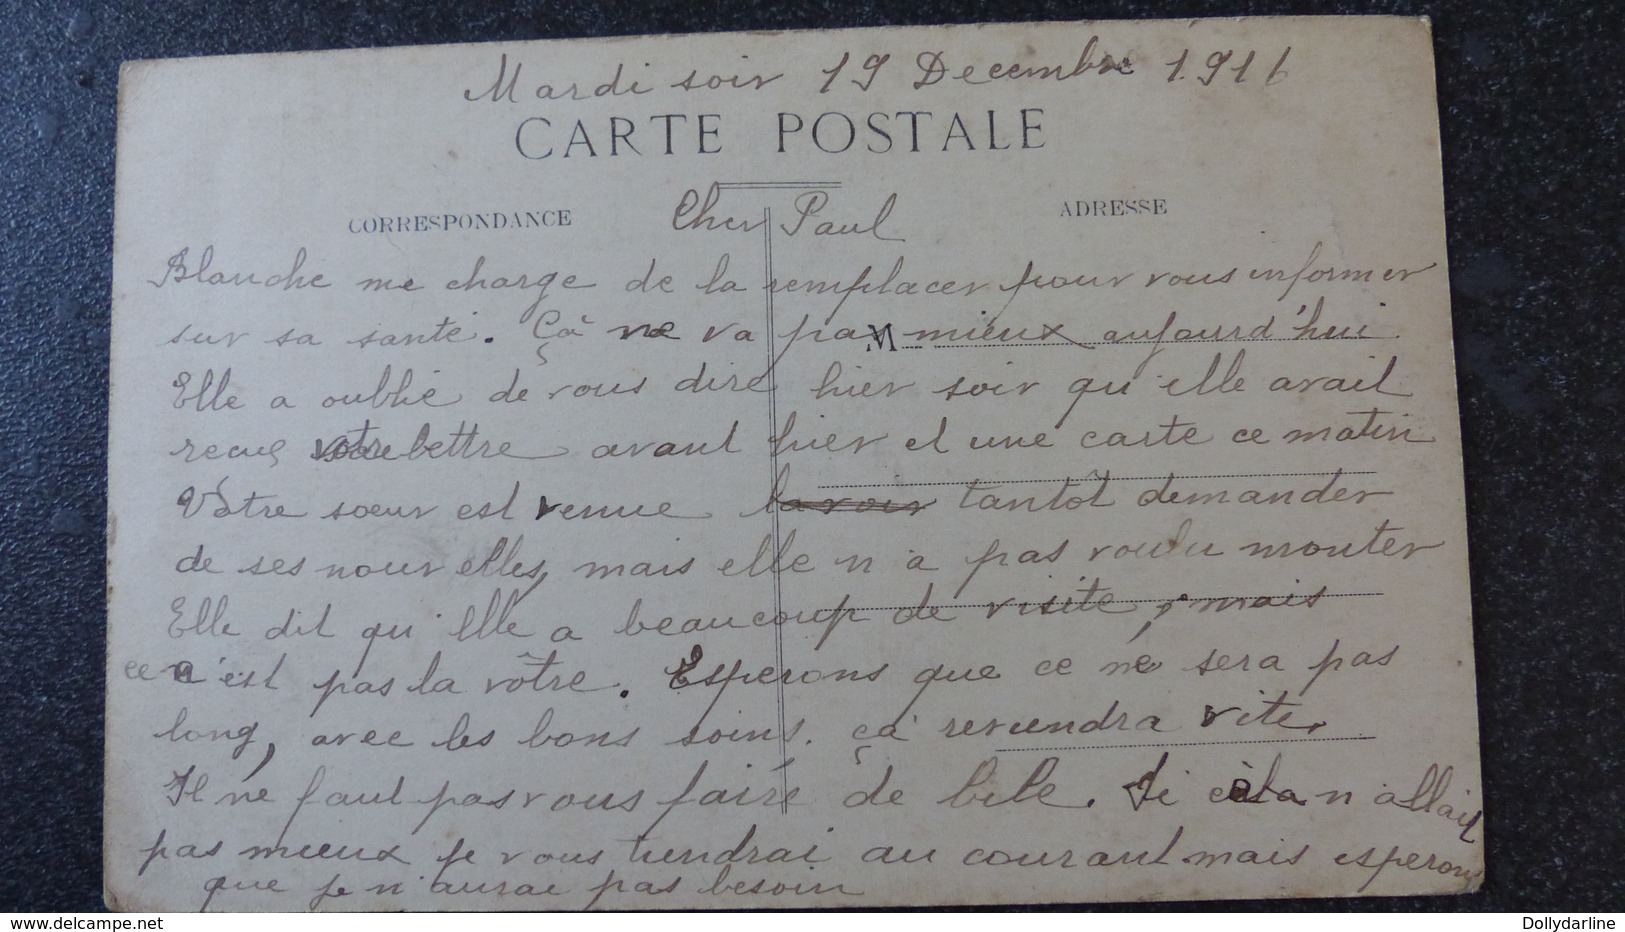 Mardi soir 19 Decembre 1916
CARTE POSTALE
CORRESPONDANCE
Cher Paul
ADRESSE
Blanche me charge de la remplacer pour vous informer
sur sa santé. Ça ne va pas mieux aujourd'hui
M
Elle a oublié de vous dire hier soir qu'elle avait
recue votre lettre avant hier et une carte ce matin
Votre soeur est venue la voir tantôt demander
de ses nouvelles, mais elle n a pas voulu monter
Elle dit qu'elle a beaucoup de visite, mais
ce n'est pas la vôtre. Esperons que ce ne sera pas
long, avec les bons soins. ça reviendra vite.
Il ne faut pas vous faire de bile. Si cela n allait
pas mieux je vous tiendrai au courant mais esperons
que je n'aurai pas besoin
Dollydarline